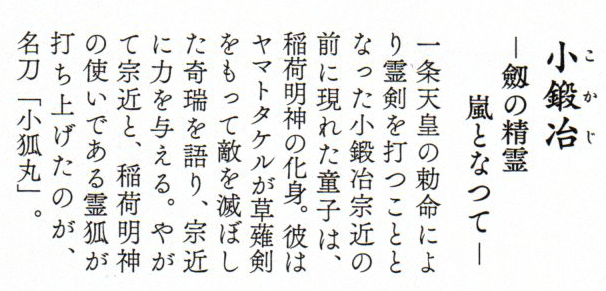 こかじ
小鍛冶
―劔の精霊
嵐となつて―
一条天皇の勅命によ
り霊剣を打つことと
なった小鍛冶宗近の
前に現れた童子は、
稲荷明神の化身。彼は
ヤマトタケルが草薙剣
をもって敵を滅ぼし
た奇瑞を語り、宗近
に力を与える。やが
て宗近と、稲荷明神
の使いである霊狐が
打ち上げたのが、
名刀「小狐丸」。